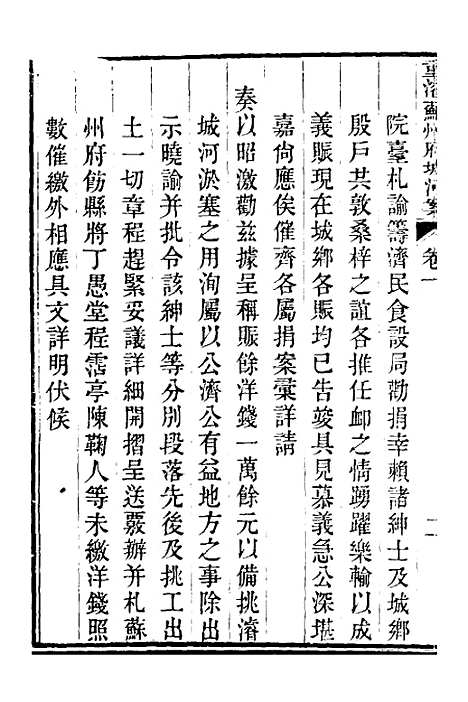 重濬蘇州府城河案 卷一 二
院臺札諭籌濟民食設局勸捐幸賴諸紳士及城鄉
殷戶共敦桑梓之誼各推任卹之情踴躍樂輸以成
義賑現在城鄉各賑均已告竣具見慕義急公深堪
嘉尙應俟催齊各屬捐案彙詳請
奏以昭激勸茲據呈稱賑餘洋錢一萬餘元以備挑濬
城河淤塞之用洵屬以公濟公有益地方之事除出
示曉諭并批令該紳士等分別段落先後及挑工出
土一切章程趕緊妥議詳細開摺呈送覈辦并札蘇
州府飭縣將丁愚堂程霑亭陳鞠人等未繳洋錢照
數催繳外相應具文詳明伏候